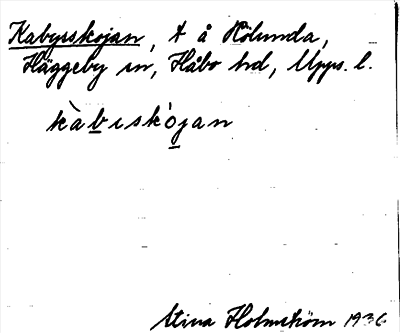 Kabysskojan, t å Kölunda,
Häggeby sn, Håbo hd, Upps. l.
kàbiskójan
Stina Holmström 1936